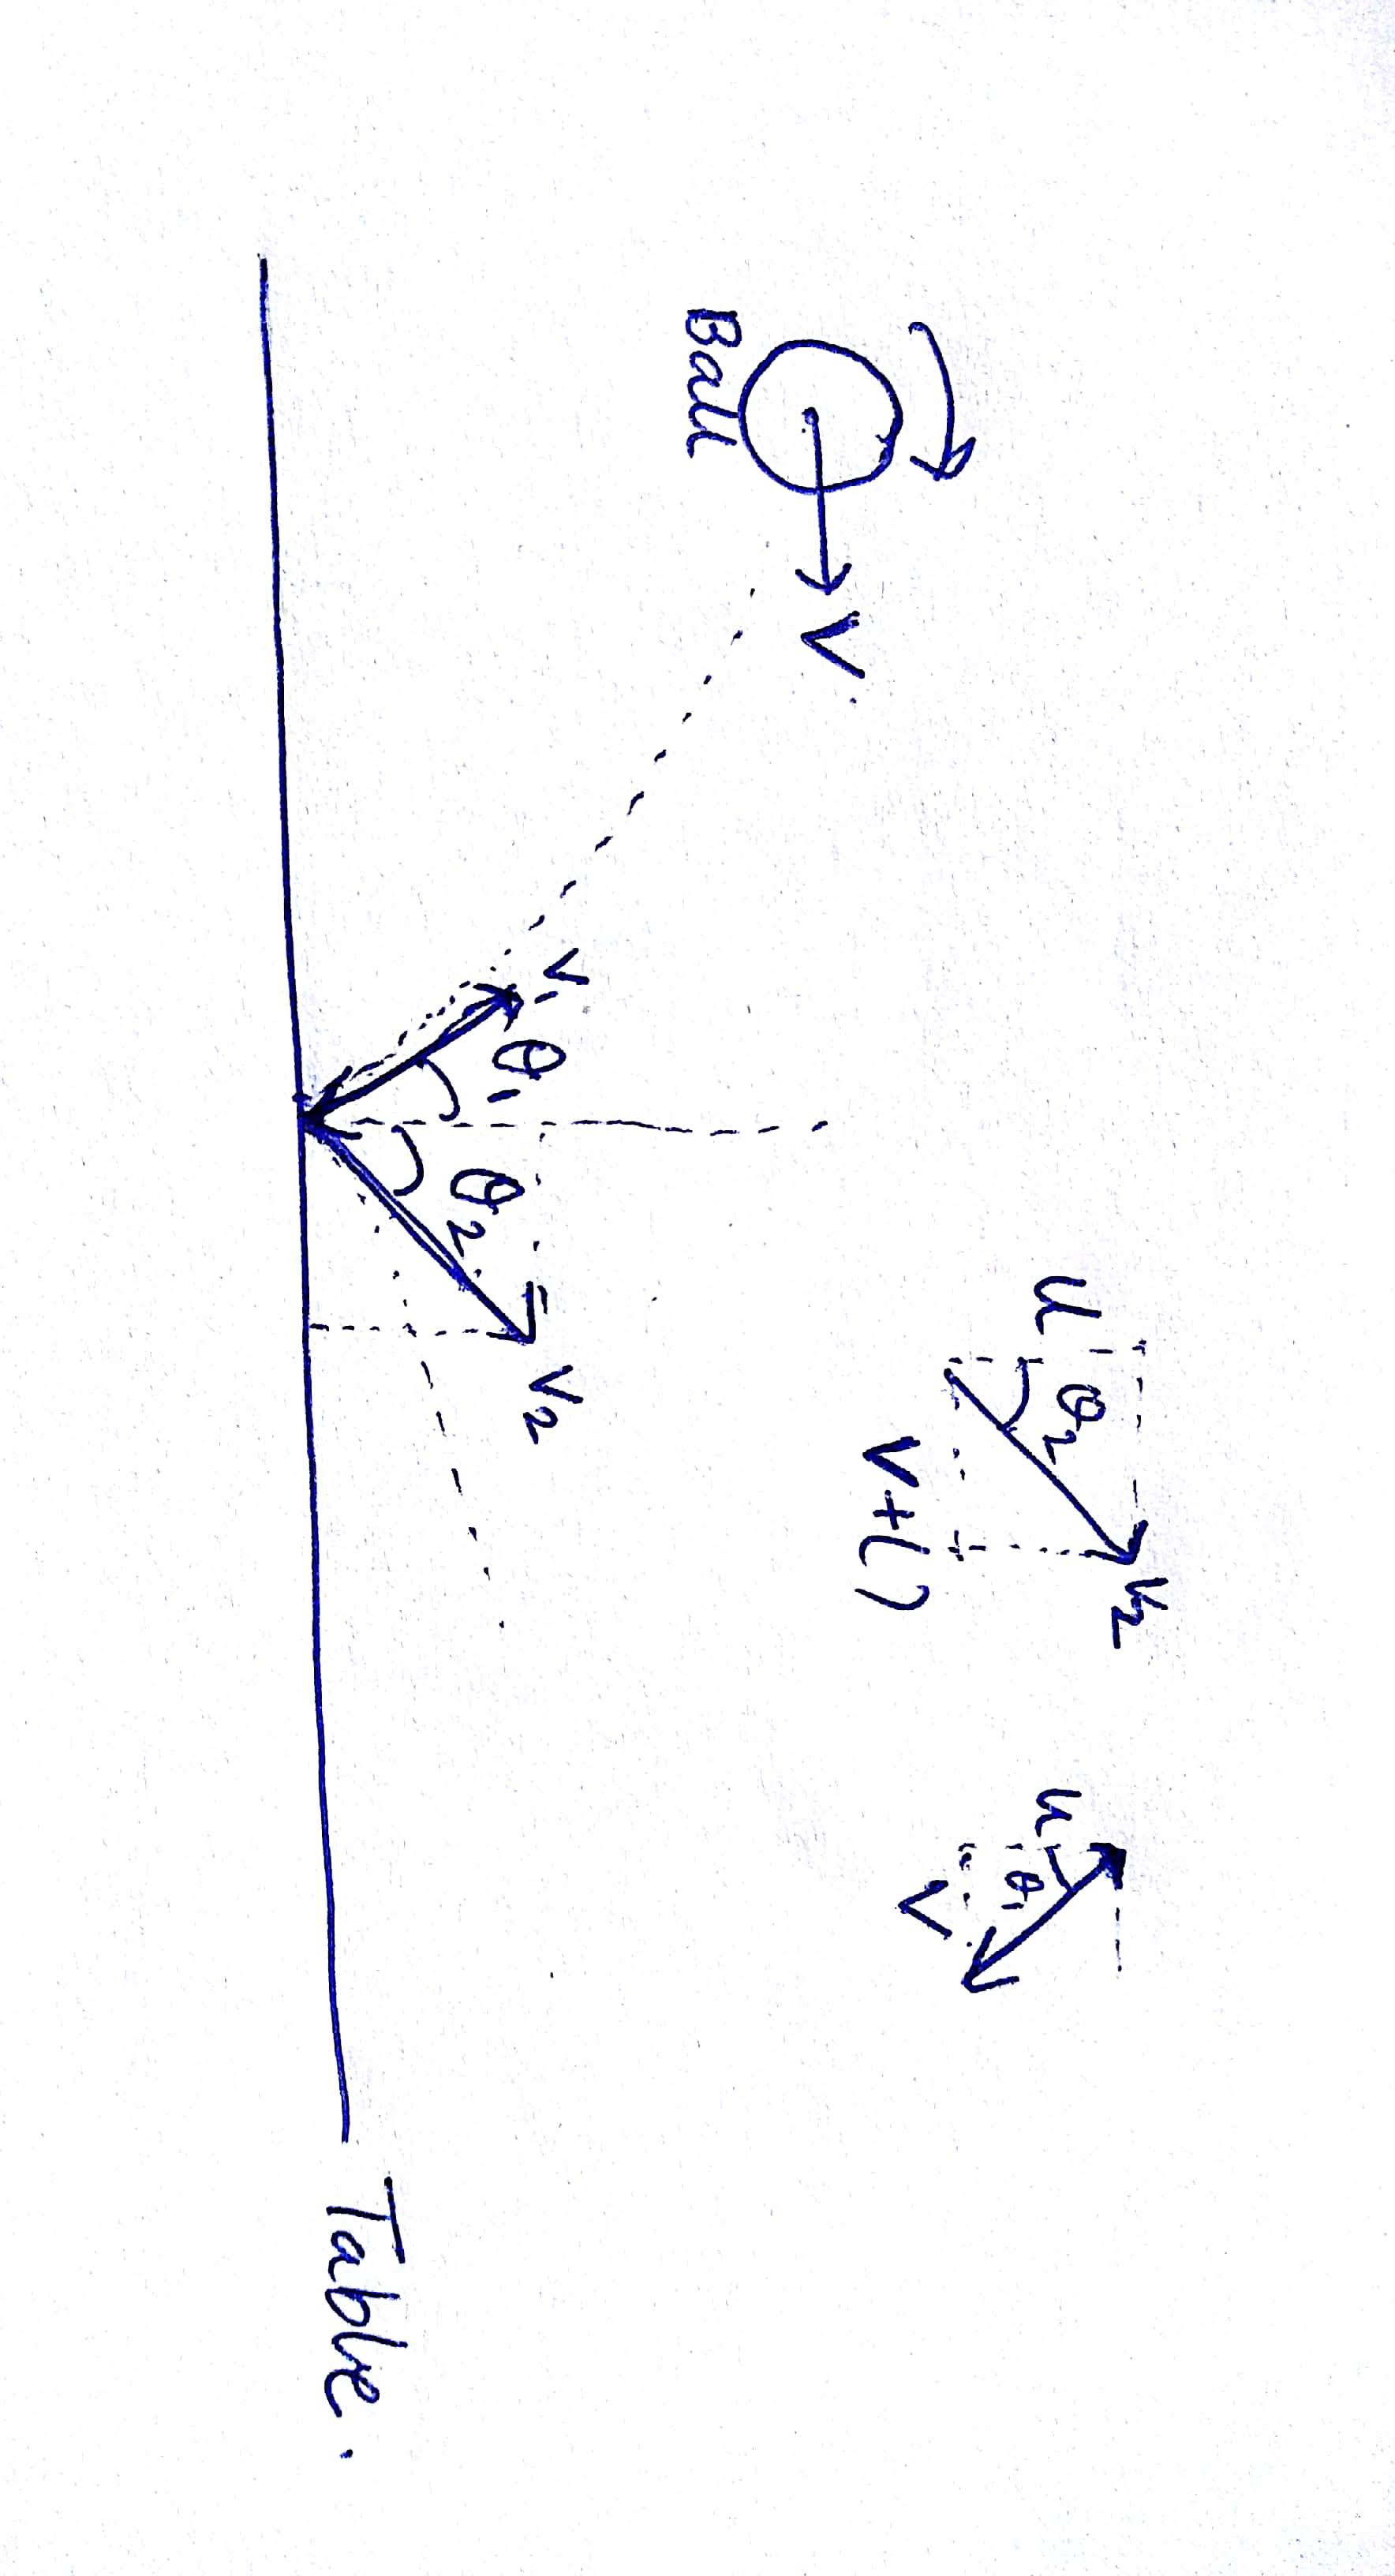 V₂
U θ₂
V+( )
u θ₁
V
V
Ball
V₁ θ₁
θ₂ V₂
Table.